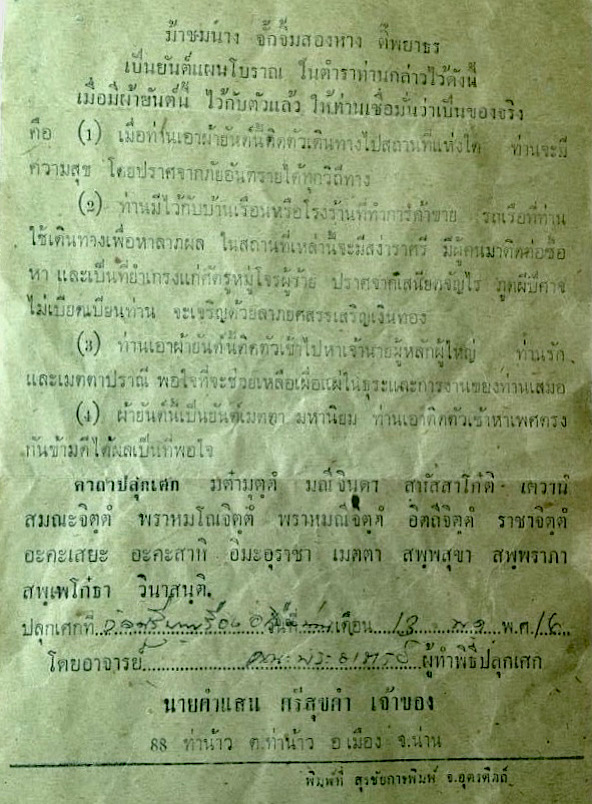 ม้าชมนาง จักจิ้มสองหาง ติ๊พยาธร
เป็นยันต์แผนโบราณ ในตำราท่านกล่าวไว้ดังนี้
เมื่อมีผ้ายันต์นี้ ไว้กับตัวแล้ว ให้ท่านเชื่อมั่นว่าเป็นของจริง
คือ (1) เมื่อท่านเอาผ้ายันต์นี้ติดตัวเดินทางไปสถานที่แห่งใด ท่านจะมี
ความสุข โดยปราศจากภัยอันตรายได้ทุกวิถีทาง
(2) ท่านมีไว้กับบ้านเรือนหรือโรงร้านที่ทำการค้าขาย รถเรือที่ท่าน
ใช้เดินทางเพื่อหาลาภผล ในสถานที่เหล่านี้จะมีสง่าราศรี มีผู้คนมาติดต่อซื้อ
หา และเป็นที่ยำเกรงแก่ศัตรูหมู่โจรผู้ร้าย ปราศจากเสนียดจัญไร ภูตผีปีศาจ
ไม่เบียดเบียนท่าน จะเจริญด้วยลาภยศสรรเสริญเงินทอง
(3) ท่านเอาผ้ายันต์นี้ติดตัวเข้าไปหาเจ้านายผู้หลักผู้ใหญ่ ท่านรัก
และเมตตาปราณี พอใจที่จะช่วยเหลือเผื่อแผ่ในธุระและการงานของท่านเสมอ
(4) ผ้ายันต์นี้เป็นยันต์เมตตา มหานิยม ท่านเอาติดตัวเข้าหาเพศตรง
กันข้ามก็ได้ผลเป็นที่พอใจ
คาถาปลุกเศก มต๋ามุตฺตํ มณีจินดา สหัสสาโกํติ เตวานํ
สมณะจิตฺตํ พราหมโณจิตฺตํ พราหมณีจิตฺตํ อิตถีจิตฺตํ ราชาจิตฺตํ
อะคะเสยะ อะคะสาทิ อิมะอุราชา เมตตา สพฺพสุขา สพฺพราภา
สพฺเพโก๋ธา วินาสนฺติ.
ปลุกเศกที่ วันที่ เดือน 13 พ.ศ. 16
โดยอาจารย์ ผู้ทำพิธีปลุกเศก
นายคำแสน ศรีสุขคำ เจ้าของ
88 ท่าน้าว ต.ท่าน้าว อ เมือง จ.น่าน
พิมพ์ที่ สุรชัยการพิมพ์ จ.อุตรดิตถ์